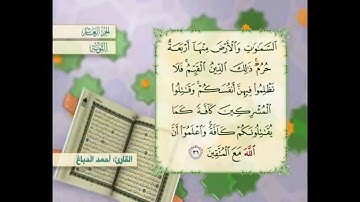 الجزء العاشر
التوبة
ٱلسَّمَٰوَٰتِ وَٱلْأَرْضَ مِنْهَآ أَرْبَعَةٌ
حُرُمٌ ۚ ذَٰلِكَ ٱلدِّينُ ٱلْقَيِّمُ ۚ فَلَا
تَظْلِمُوا۟ فِيهِنَّ أَنفُسَكُمْ ۚ وَقَٰتِلُوا۟
ٱلْمُشْرِكِينَ كَآفَّةً كَمَا
يُقَٰتِلُونَكُمْ كَآفَّةً ۚ وَٱعْلَمُوٓا۟ أَنَّ
ٱللَّهَ مَعَ ٱلْمُتَّقِينَ ٣٦
القارئ: أحمد الدباغ